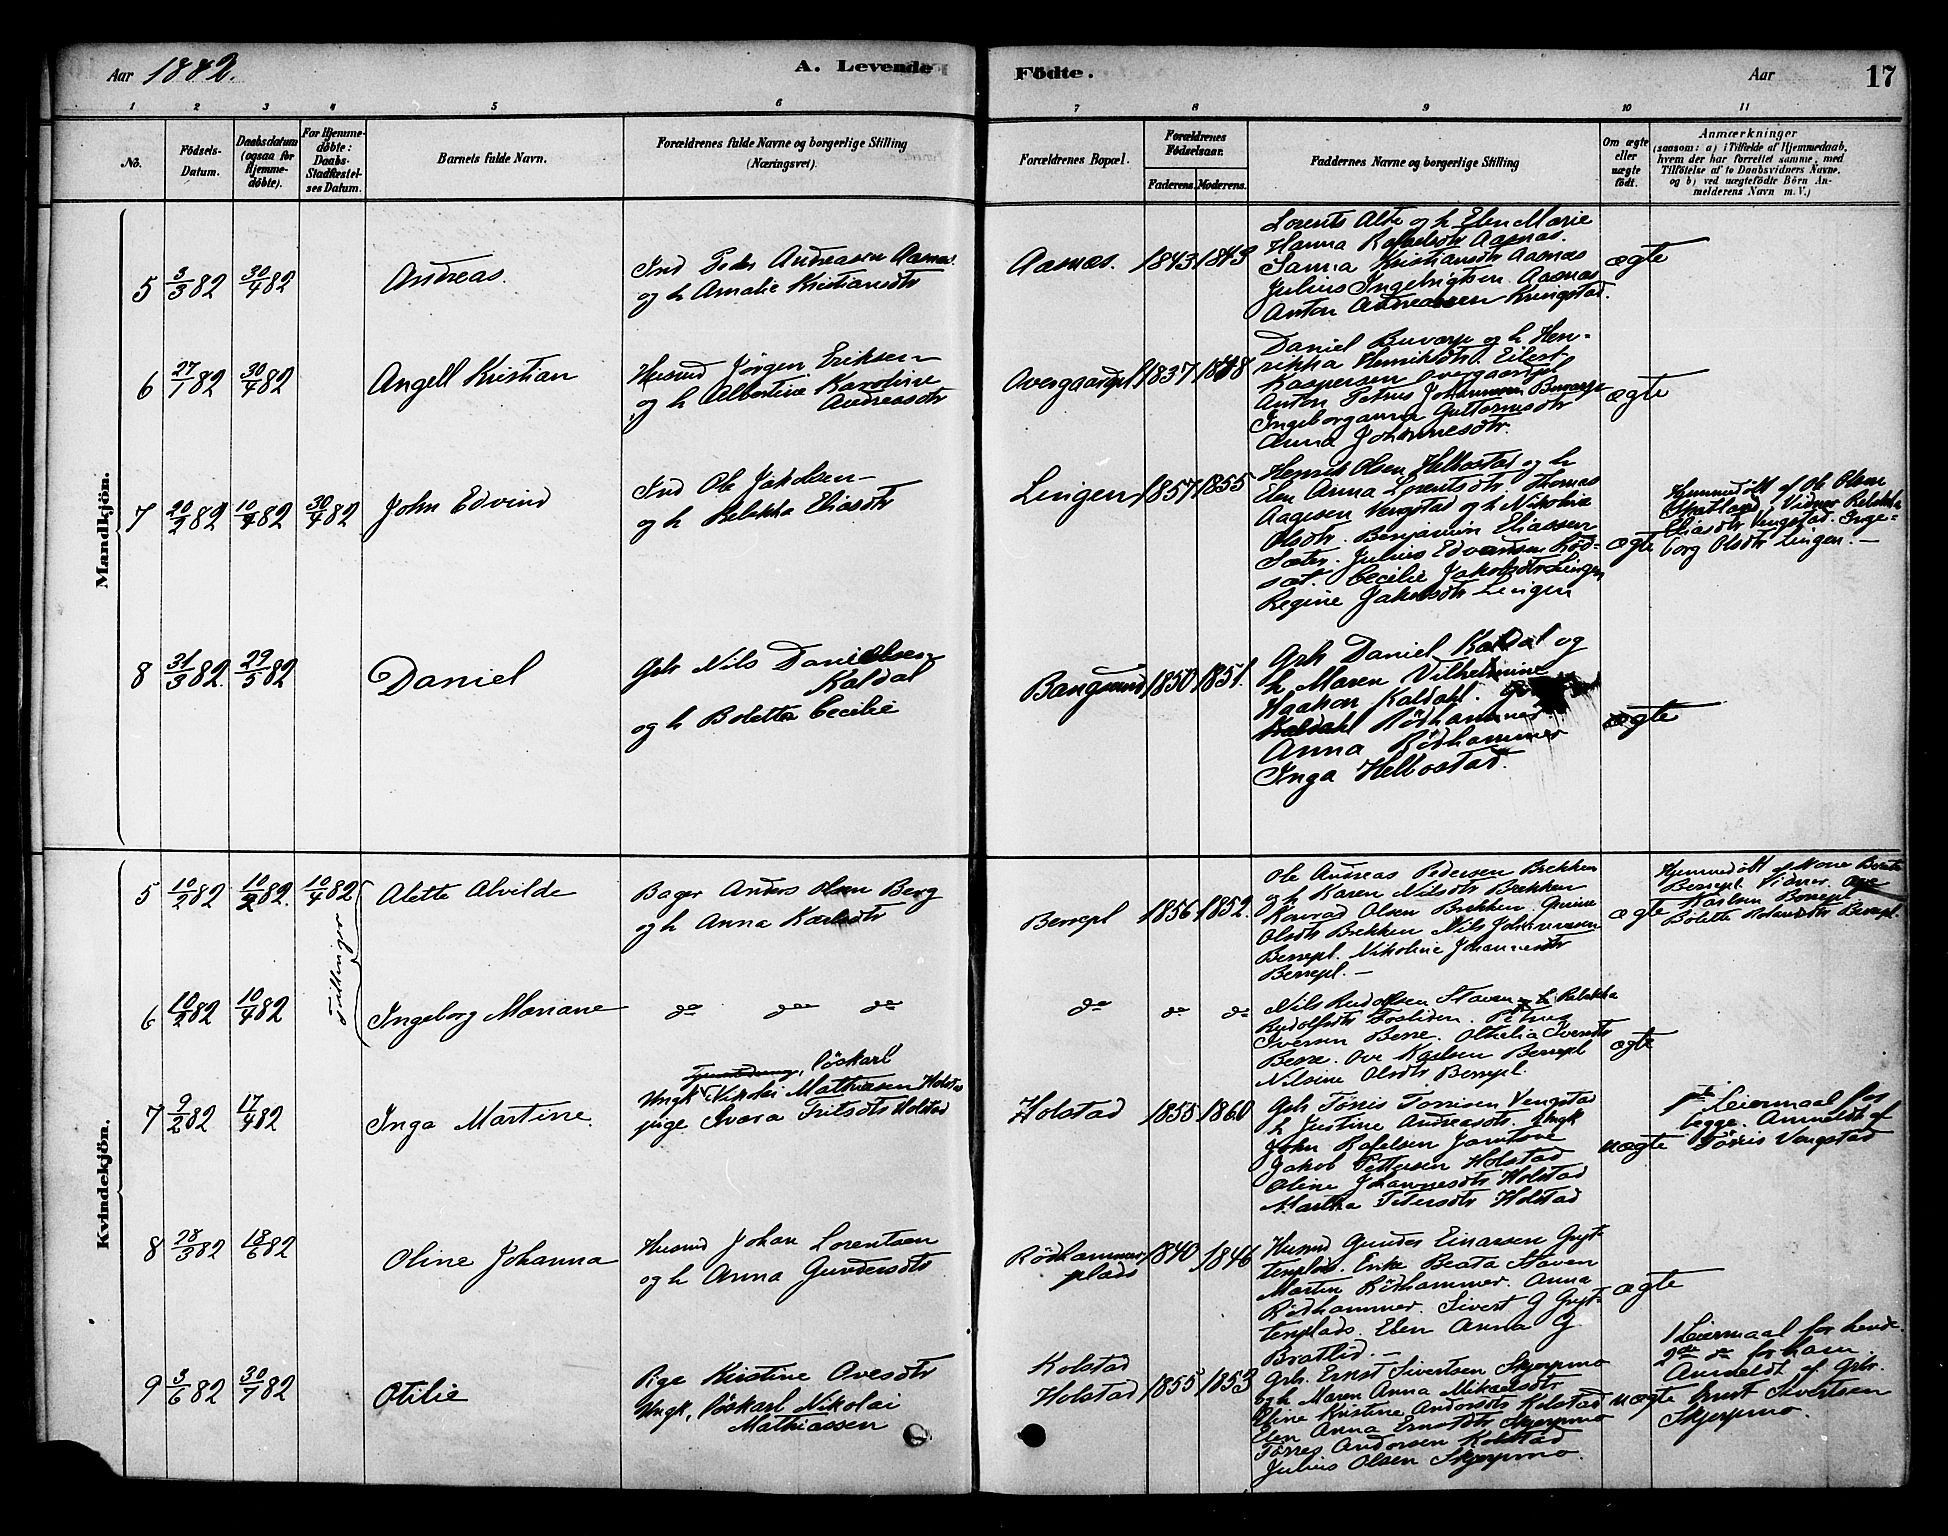 Aar 1882.
A. Levende
Födte.
Aar
17
1 2 3 4 5 6 7 8 9 10 11
No.
Födsels-
Datum.
Daabsdatum
(ogsaa for
Hjemme-
döbte).
For Hjemme-
döbte:
Daabs-
Stadfæstel-
ses Datum.
Barnets fulde Navn.
Forældrenes fulde Navne og borgerlige Stilling
(Næringsvei).
Forældrenes Bopæl.
Forældrenes
Födselsaar.
Faderens.
Moderens.
Faddernes Navne og borgerlige Stilling
Om ægte
eller
uægte
födt.
Anmærkninger
(saasom: a) i Tilfælde af Hjemmedaab,
hvem der har forrettet samme, med
Tilföielse af to Daabsvidners Navne,
og b) ved uægtefödte Börn An-
melderens Navn m. V.)
Mandkjön.
5 3/3 82 30/4 82
Andreas.
Ind Peder Andreasen Aasnes
og h Amalie Kristiansdtr
Aasnes. 1843 1843
Lorents Alte og h Elen Marie
Hanna Rafaelsdtr Aasnæs.
Sanna Kristiansdtr Aasnæs
Julius Ingebrigtsen Aasnæs
Anton Andreassen Kringstad.
ægte
6 27/1 82 30/4 82
Angell Kristian
Husmd Jörgen Eriksen
og h Albertine Karoline
Andreasdtr
Overgaardspl 1837 1848
Daniel Buvarp og h Hen-
rikka Henriksdtr. Eilert
Kaspersen Overgaardspl
Anton Petrus Johannesen Buvarp
Ingeborganna Guttormsdtr
Anna Johannesdtr.
ægte
7 20/2 82 10/4 82 30/4 82
John Edvind
Ind Ole Jakobsen
og h Rebekka Eliasdtr
Lingen 1857 1855
Henrik Olsen Helbostad og h
Elen Anna Lorentsdtr Thomas
Aagesen Vengstad og h Nikoline
Olsdtr. Benjamin Eliassen
Sæter. Julius Edvardsen Röd-
sæt. Cecilie Jakobsdtr Lingen
Regine Jakobsdtr Lingen
ægte
Hjemmedöbt af Ole Olsen
Spatland, Vidner Rebekka
Eliasdtr Vengstad. Inge-
borg Olsdtr Lingen.
8 31/3 82 29/5 82
Daniel
Grb Nils Danielsen
Kaldal
og h Boletta Cecilie
Bangsund 1850 1851.
Grb Daniel Kaldal og
h Maren Vilhelmine
Haakon Kaldahl.
Kaldahl Rödhammer.
Anna Rödhammer
Inga Helbostad.
ægte
Kvindekjön.
5 10/2 82 10/2 82. 10/4 82
Tvillinger
Alette Alvilde
Bager Anders Olsen Berg
og h Anna Karlsdtr
Berrepl 1856 1852.
Ole Andreas Pedersen Brekken
og h Karen Nilsdtr Brekken
Konrad Olsen Brekken. Grine
Olsdtr Brekken Nils Johannesen
Berrepl. Nikoline Johannesdtr
Berrepl.
ægte
Hjemmedöbt af Mone Berete
Berrepl. Vidner. Ove
Karlsen Berrepl
Bolette Berrepl.
6 10/2 82 10/4 82
Ingeborg Mariane
do do do
do do do
Nils Rudolfsen Staven og h Rebekka
Rudolfsdtr Fosliden. Petrus
Iversen Berre. Othelia Ivarsdtr
Berre. Ove Karlsen Berrepl
Nilsine Olsdtr Berrepl.
ægte
7 9/2 82 17/4 82
Inga Martine.
löskarl
Ungk Nikolai Mathiasen Holstad
pige Ivara Fritsdtr Holstad
Holstad 1858 1860
Grb. Törris Törrisen Vengstad
h Justine Andreasdtr. Ungk
John Rafelsen
Jakob Pettersen Holstad
Oline Johannesdtr Holstad
Martha Petersdtr Holstad
uægte
1ste Leiermaal for
begge. Anmeldt af
Törris Vengstad
8 28/3 82 18/6 82
Oline Johanna
Husmd Johan Lorentsen
og h Anna Gundersdtr
Rödhammer
plads 1840 1846
Husmd Gunder Einarsen Gryt-
tenplads. Enke Beata Staven
Martin Rödhammer. Anna
Rödhammer. Sivert G Gryt-
tenplads. Elen Anna G
Bratlid.
ægte
9 3/6 82 30/7 82
Otilie
Pige Kristine Ovesdtr
Ungk, löskarl Nikolai
Mathiassen
Kolstad
Holstad 1855 1853
Grb. Ernst Sivertsen Skjerpmo
og h Maren Anna Mikaelsdtr
Eline Kristine Andersdtr Kolstad
Elen Anna Ernstdtr Skjerpmo
Törres Andorsen Kolstad
Julius Olsen Skjerpmo.
uægte
1 Leiermaal for hende.
2det do for ham.
Anmeldt af Grbr.
Ernst Sivertsen
Skjerpmo.